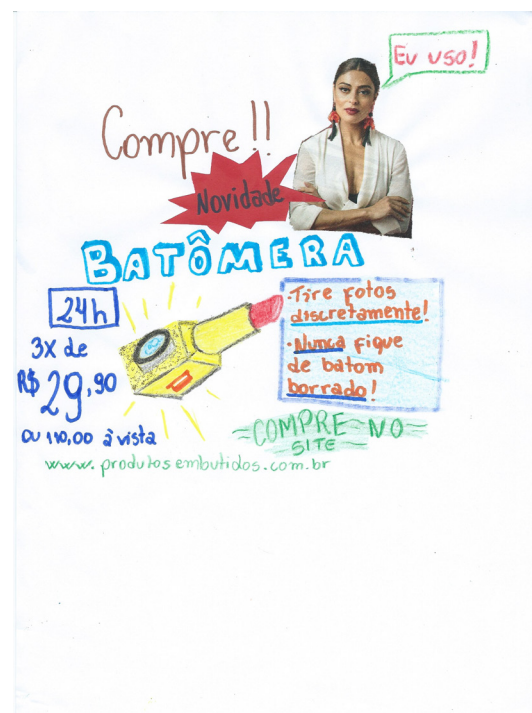 Eu uso!
Compre!!
Novidade
BATÔMERA
24h
3x de
R$ 29,90
ou 110,00 à vista
·Tire fotos
discretamente!
·Nunca fique
de batom
borrado!
=COMPRE=NO=
SITE
www.produtosembutidos.com.br